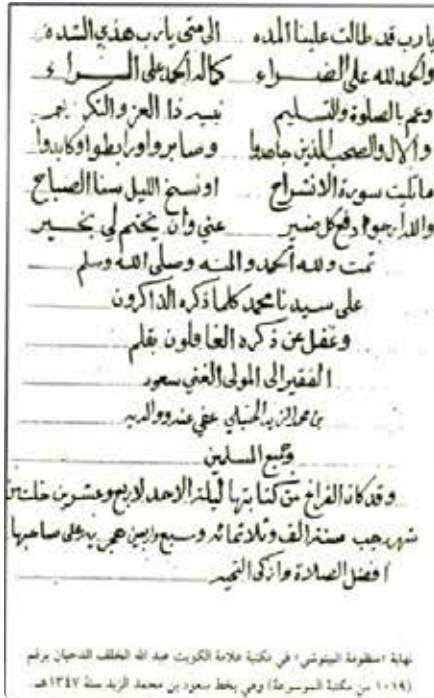 يا رب قد طالت علينا المده الى متى يا رب هذي الشده
والحمد لله على الضراء كماله الحمد على السراء
وعم بالصلوة والتسليم نبيه ذا العز والتكريم
والآل والصحب الذين جاهدوا وصابروا ورابطوا وكابدوا
ما تليت سورة الانشراح او نسخ الليل سنا الصباح
والله أرجو دفع كل ضير عني وأن يختم لي بخير
تمت ولله الحمد والمنه وصلى الله وسلم
على سيدنا محمد كلما ذكره الذاكرون
وغفل عن ذكره الغافلون بقلم
الفقير الى المولى الغني سعود
بن محمد الزيد الحنبلي عفي عنه ووالديه
وجميع المسلمين
وقد كان الفراغ من كتابتها ليلة الاحد لاربع وعشرين خلت من
شهر رجب سنة الف وثلاثمائه وسبع واربعين هجريه على صاحبها
افضل الصلاة وازكى التحيه
نهاية «منظومة البيتوشي» في مكتبة علامة الكويت عبد الله الخلف الدحيان برقم
(١٠١٩ من مكتبة الموسوعة) وهي بخط سعود بن محمد الزيد سنة ١٣٤٧هـ.